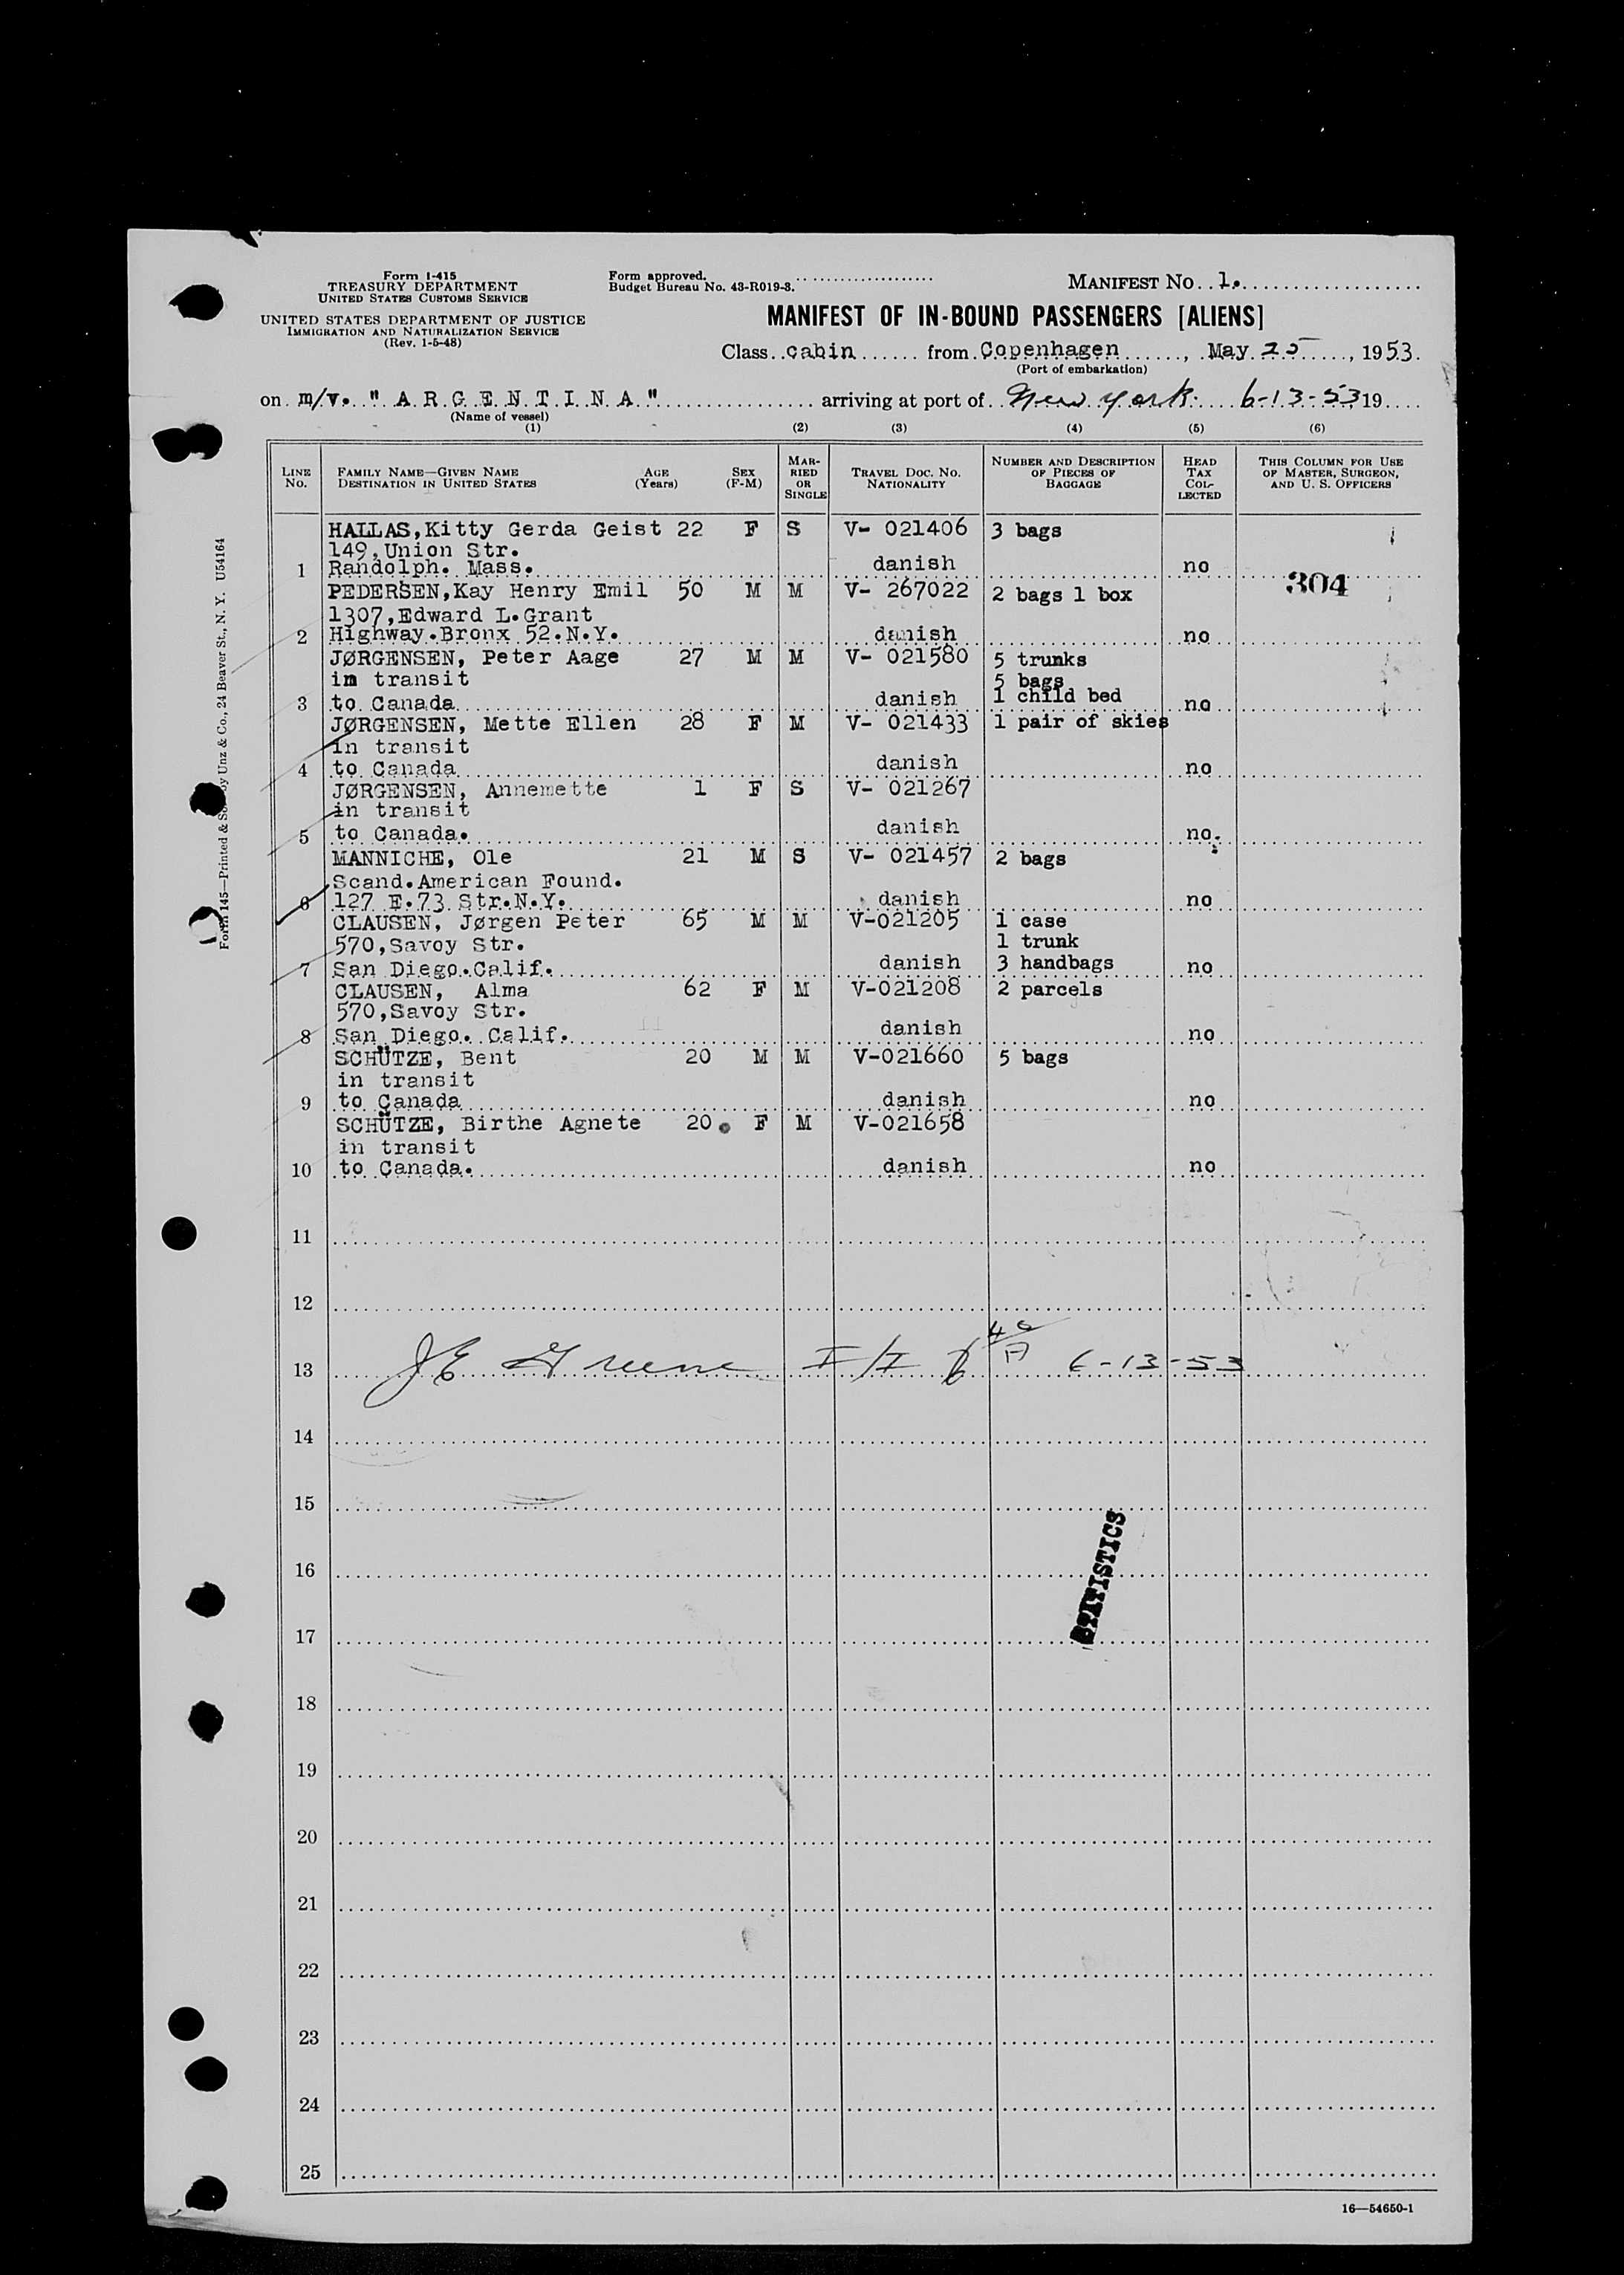 Form I-415
TREASURY DEPARTMENT
UNITED STATES CUSTOMS SERVICE
UNITED STATES DEPARTMENT OF JUSTICE
IMMIGRATION AND NATURALIZATION SERVICE
(Rev. 1-5-48)
Form approved.
Budget Bureau No. 43-R019-3.
MANIFEST NO. 1.
MANIFEST OF IN-BOUND PASSENGERS [ALIENS]
Class cabin from Copenhagen, May 25, 1953.
(Port of embarkation)
on m/v. "ARGENTINA" arriving at port of New York 6-13-53 19
(Name of vessel)
(1) (2) (3) (4) (5) (6)
LINE NO. FAMILY NAME—GIVEN NAME DESTINATION IN UNITED STATES AGE (Years) SEX (F-M) MARRIED OR SINGLE TRAVEL DOC. NO. NATIONALITY NUMBER AND DESCRIPTION OF PIECES OF BAGGAGE HEAD TAX COLLECTED THIS COLUMN FOR USE OF MASTER, SURGEON, AND U. S. OFFICERS
HALLAS, Kitty Gerda Geist 22 F S V- 021406 3 bags
149, Union Str.
1 Randolph. Mass. danish no
304
PEDERSEN, Kay Henry Emil 50 M M V- 267022 2 bags 1 box
1307, Edward L. Grant
2 Highway. Bronx 52. N.Y. danish no
JØRGENSEN, Peter Aage 27 M M V- 021580 5 trunks
in transit 5 bags
3 to Canada danish 1 child bed no
JØRGENSEN, Mette Ellen 28 F M V- 021433 1 pair of skies
in transit
4 to Canada danish no
JØRGENSEN, Annemette 1 F S V- 021267
in transit
5 to Canada. danish no.
MANNICHE, Ole 21 M S V- 021457 2 bags
Scand. American Found.
6 127 E. 73 Str. N.Y. danish no
CLAUSEN, Jørgen Peter 65 M M V-021205 1 case
570, Savoy Str. 1 trunk
7 San Diego. Calif. danish 3 handbags no
CLAUSEN, Alma 62 F M V-021208 2 parcels
570, Savoy Str.
8 San Diego. Calif. danish no
SCHÜTZE, Bent 20 M M V-021660 5 bags
in transit
9 to Canada danish no
SCHÜTZE, Birthe Agnete 20. F M V-021658
in transit
10 to Canada. danish no
11
12
13 JE Greene I/I 6-13-53
14
15
16
STATISTICS
17
18
19
20
21
22
23
24
25
16—54650-1
U54164